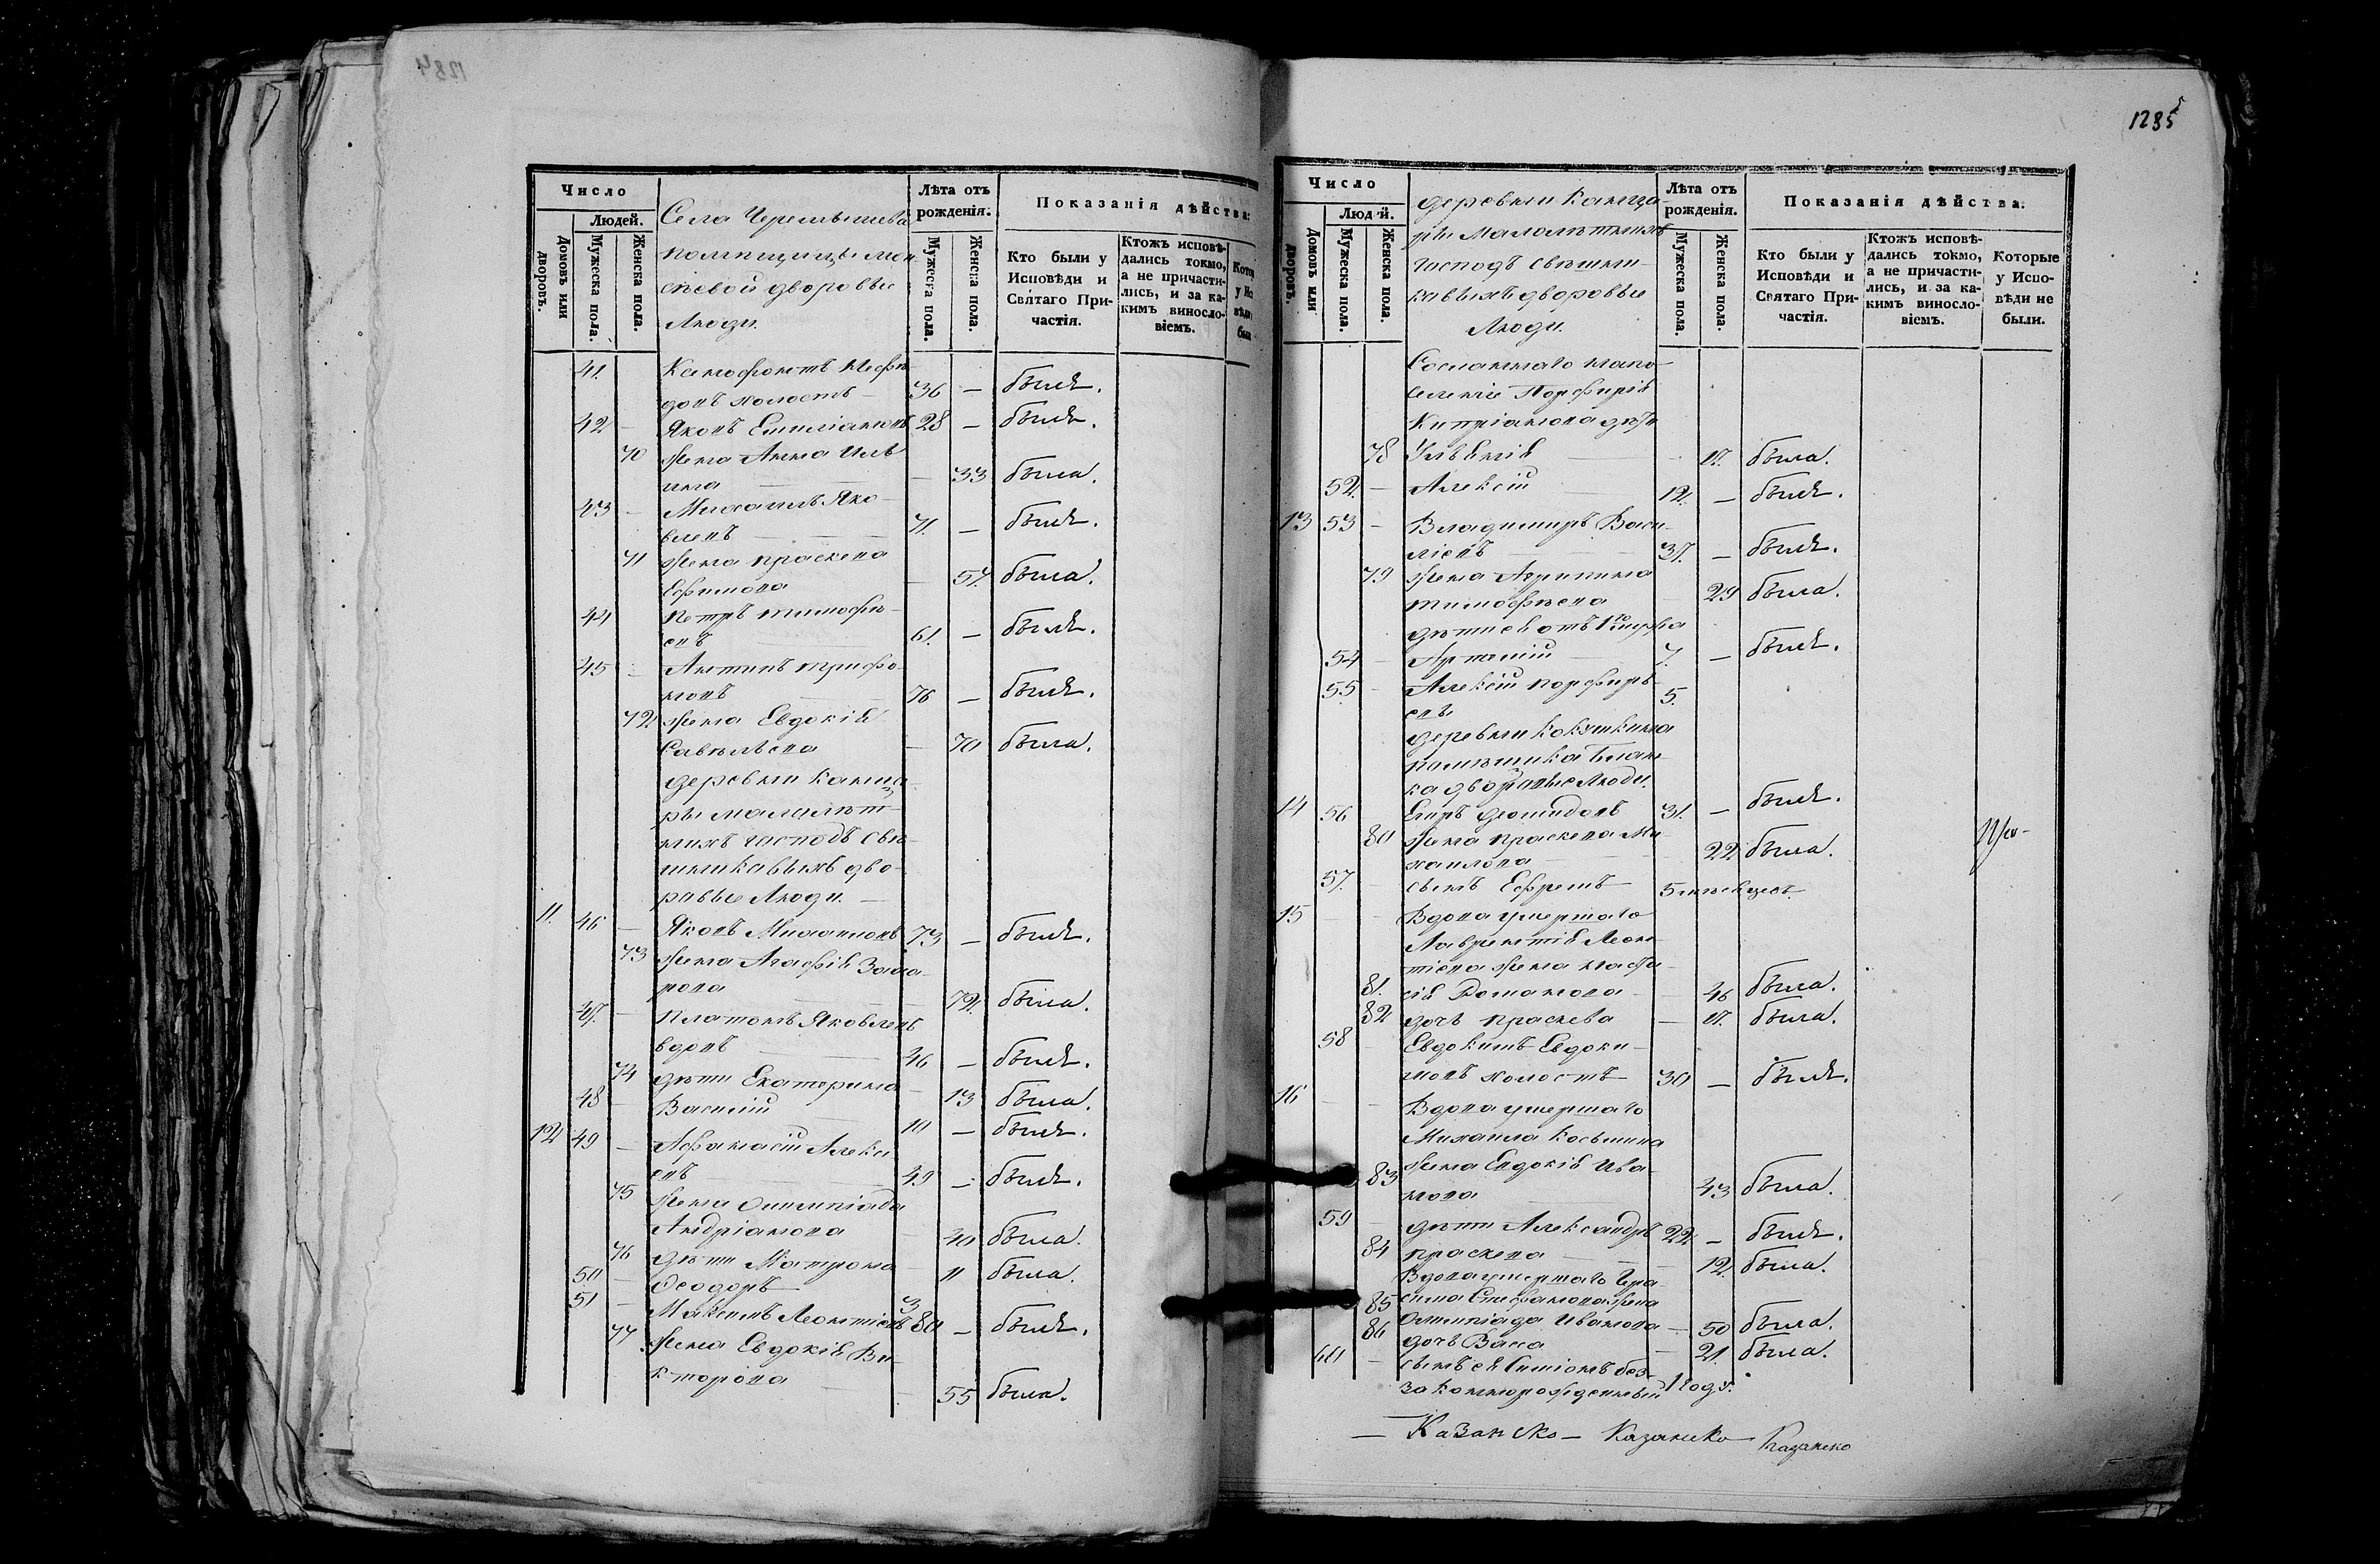 1284
Число
Людей.
Домовъ или дворовъ.
Мужеска пола.
Женска пола.
Села
помѣщицы
дворовые
Люди.
Лѣта отъ рожденія.
Мужеска пола.
Женска пола.
Показанія дѣйства.
Кто были у Исповѣди и Святаго Причастія.
Ктожъ исповѣдались токмо, а не причастились, и за какимъ винословіемъ.
41. Ксенофонтъ Мефо-
довъ холостъ — 36 — былъ.
42 — Яковъ Емиліановъ 28 — былъ.
70 жена Анна Иль
ина — 33 была.
43 — Михаилъ Яко-
влевъ 71. — былъ.
71 жена Праскева
Ефимова — 57. была.
44 Петръ Тимофѣ-
евъ 61. — былъ.
45 — Антипъ Трифо-
новъ 76 — былъ.
72 жена Евдокія
Савельева — 70 была.
деревни
ры малолѣт-
нихъ господъ Свѣ-
шниковыхъ дво-
ровые Люди. —
11. 46 — Яковъ Михаиловъ 73 — былъ.
73 жена Агафія Заха-
рова — 72. была.
47. — Платонъ Яковлевъ
вдовъ 46 — былъ.
74 дѣти Екатерина — 13 была.
48 — Василій 10 — былъ.
12 49 — Афанасій Алексѣ
евъ 49 — былъ.
75 жена Олимпіада
Андріанова — 40 была.
76 дѣти Матрона — 11 была.
50 — Ѳеодоръ 3
51 — Максимъ Леонтіевъ 80 — былъ.
77 жена Евдокія Ви-
кторова — 55 была.
1285
Число
Людей.
Домовъ или дворовъ.
Мужеска пола.
Женска пола.
деревни
ры Малолѣтнихъ
господъ Свѣшни-
ковыхъ дворовые
Люди.
Лѣта отъ рожденія.
Мужеска пола.
Женска пола.
Показанія дѣйства.
Кто были у Исповѣди и Святаго Причастія.
Ктожъ исповѣдались токмо, а не причастились, и за какимъ винословіемъ.
Которые у Исповѣди не были.
Сосланнаго напо-
селеніе Порфирія
Кипріанова дѣти
78 Ульянія — 17. была.
52. — Алексій 12. — былъ.
13 53 — Владимиръ Васи-
ліевъ 37. — былъ.
79 жена Агрипина
Тимофѣева 29 была.
дѣти ея отъ 1го мужа
54 — Арпалій 7. — былъ.
55 — Алексій Порфирь-
евъ 5.
деревни Кокушкина
помѣщика Блан-
ка дворовые Люди.
14 56 31. — былъ.
80 жена Праскева Ми-
хаилова 22 была.
57. сынъ Ефремъ 5 мѣсяцевъ.
15 — Вдова умершаго
Лаврентія Леон-
тіева жена
81. Романова 46 была.
82 дочь Праскева — 17. была.
58 Евдокимъ Евдоки-
мовъ холостъ 30 — былъ.
16 — Вдова умершаго
Михаила Косьмина
83 жена Евдокія Ива-
нова 43 была.
59 дѣти Александръ 22 — былъ.
84 Праскева — 12. была.
Вдова умершаго Гера-
85 сима Стефанова жена
Олимпіада Иванова — 50 была.
86 дочь Васса 21. была.
60 — сынъ ея Симіонъ без-
законнорожденный 1 годъ.
— Казанско — Казанско Казанско